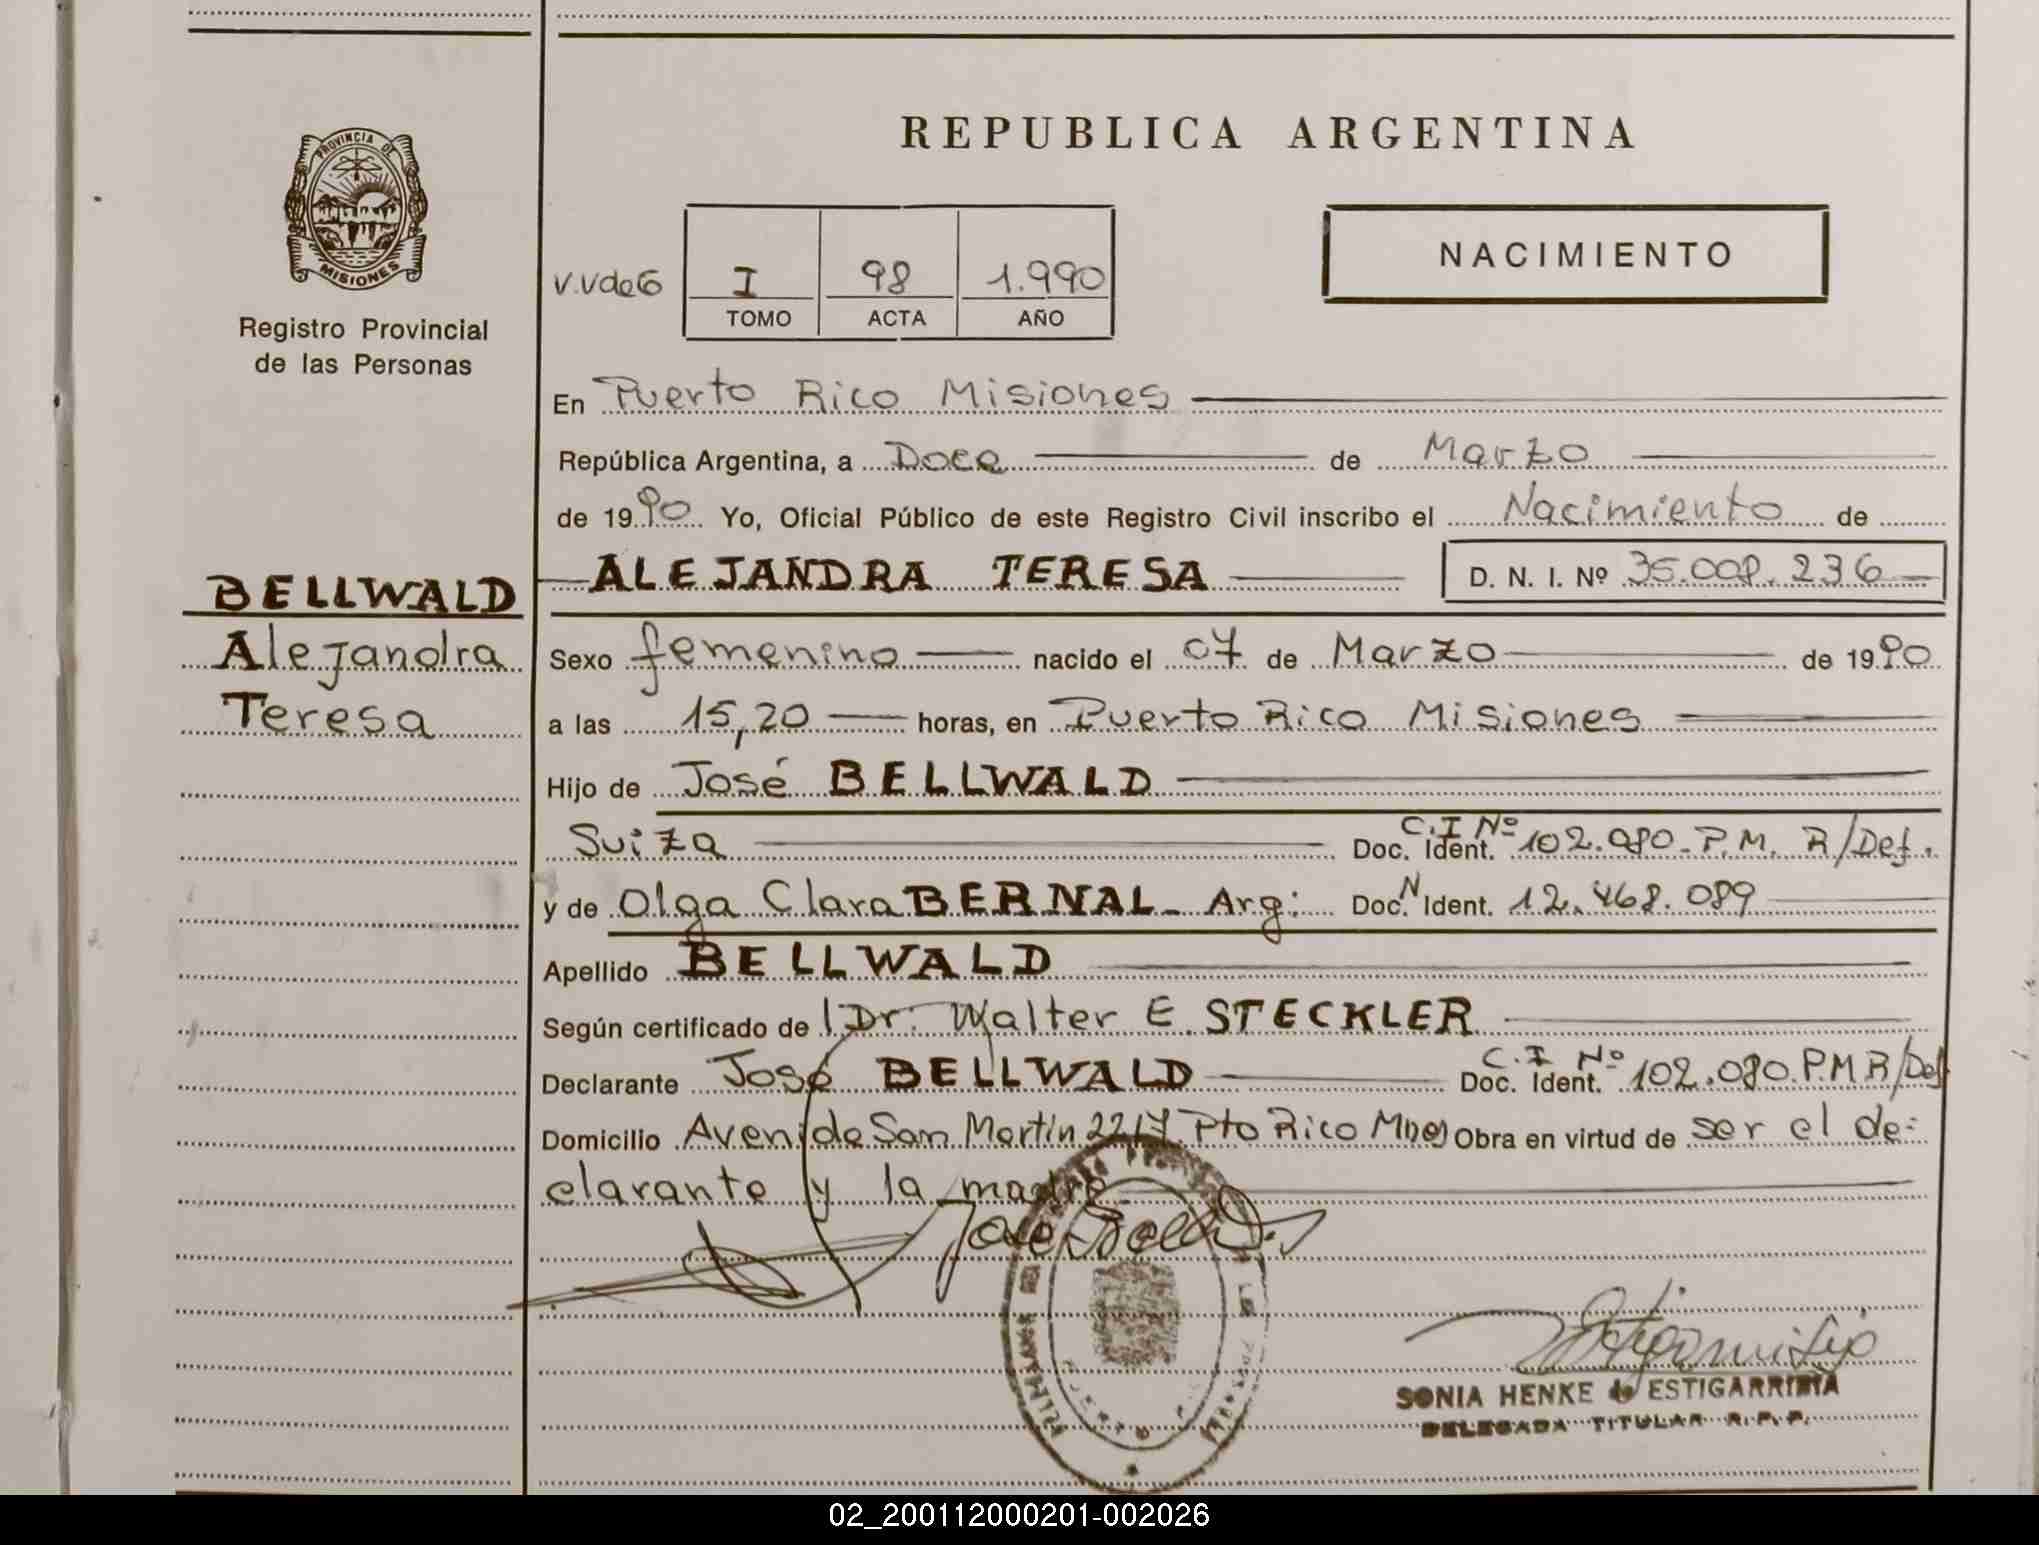 PROVINCIA DE
MISIONES
Registro Provincial
de las Personas
BELLWALD
Alejandra
Teresa
REPUBLICA ARGENTINA
NACIMIENTO
V.Vde6
I 98 1.990
TOMO ACTA AÑO
En Puerto Rico Misiones
República Argentina, a Doce de Marzo
de 1990 Yo, Oficial Público de este Registro Civil inscribo el Nacimiento de
ALEJANDRA TERESA D. N. I. Nº 35.008.236
Sexo femenino nacido el 07 de Marzo de 1990
a las 15,20 horas, en Puerto Rico Misiones
Hijo de José BELLWALD
Suiza C.I Nº Doc. Ident. 102.080-P.M. R/Def.
y de Olga Clara BERNAL- Arg: Doc. N Ident. 12.468.089
Apellido BELLWALD
Según certificado de Dr. Walter E. STECKLER
Declarante José BELLWALD C.I Nº Doc. Ident. 102.080.PMR/Def
Domicilio Avenida San Martín 2217 Pto Rico Mnes Obra en virtud de ser el de-
clarante y la madre
SONIA HENKE de ESTIGARRIBIA
DELEGADA TITULAR R.P.P.
02_200112000201-002026